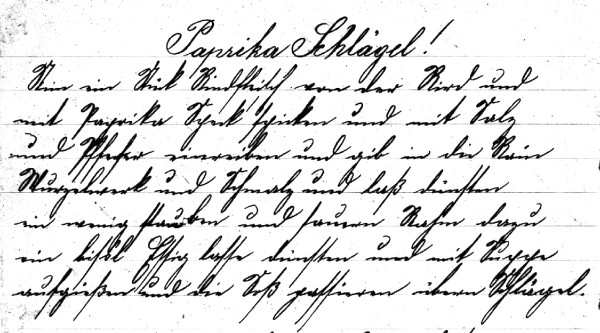 Paprika Schlägel!
Nim ein Stük Rindfleisch von der Rird und
mit Paprika Speck spicken und mit Salz
und Pfefer einreiben und gib in die Rein
Wurzelwerk und Schmalz und laß dünsten
ein wenig stauben und sauern Rahm dazu
ein bisöl Essig lasse dünsten und mit Suppe
aufgießen und die Soß passieren übern Schlägel.